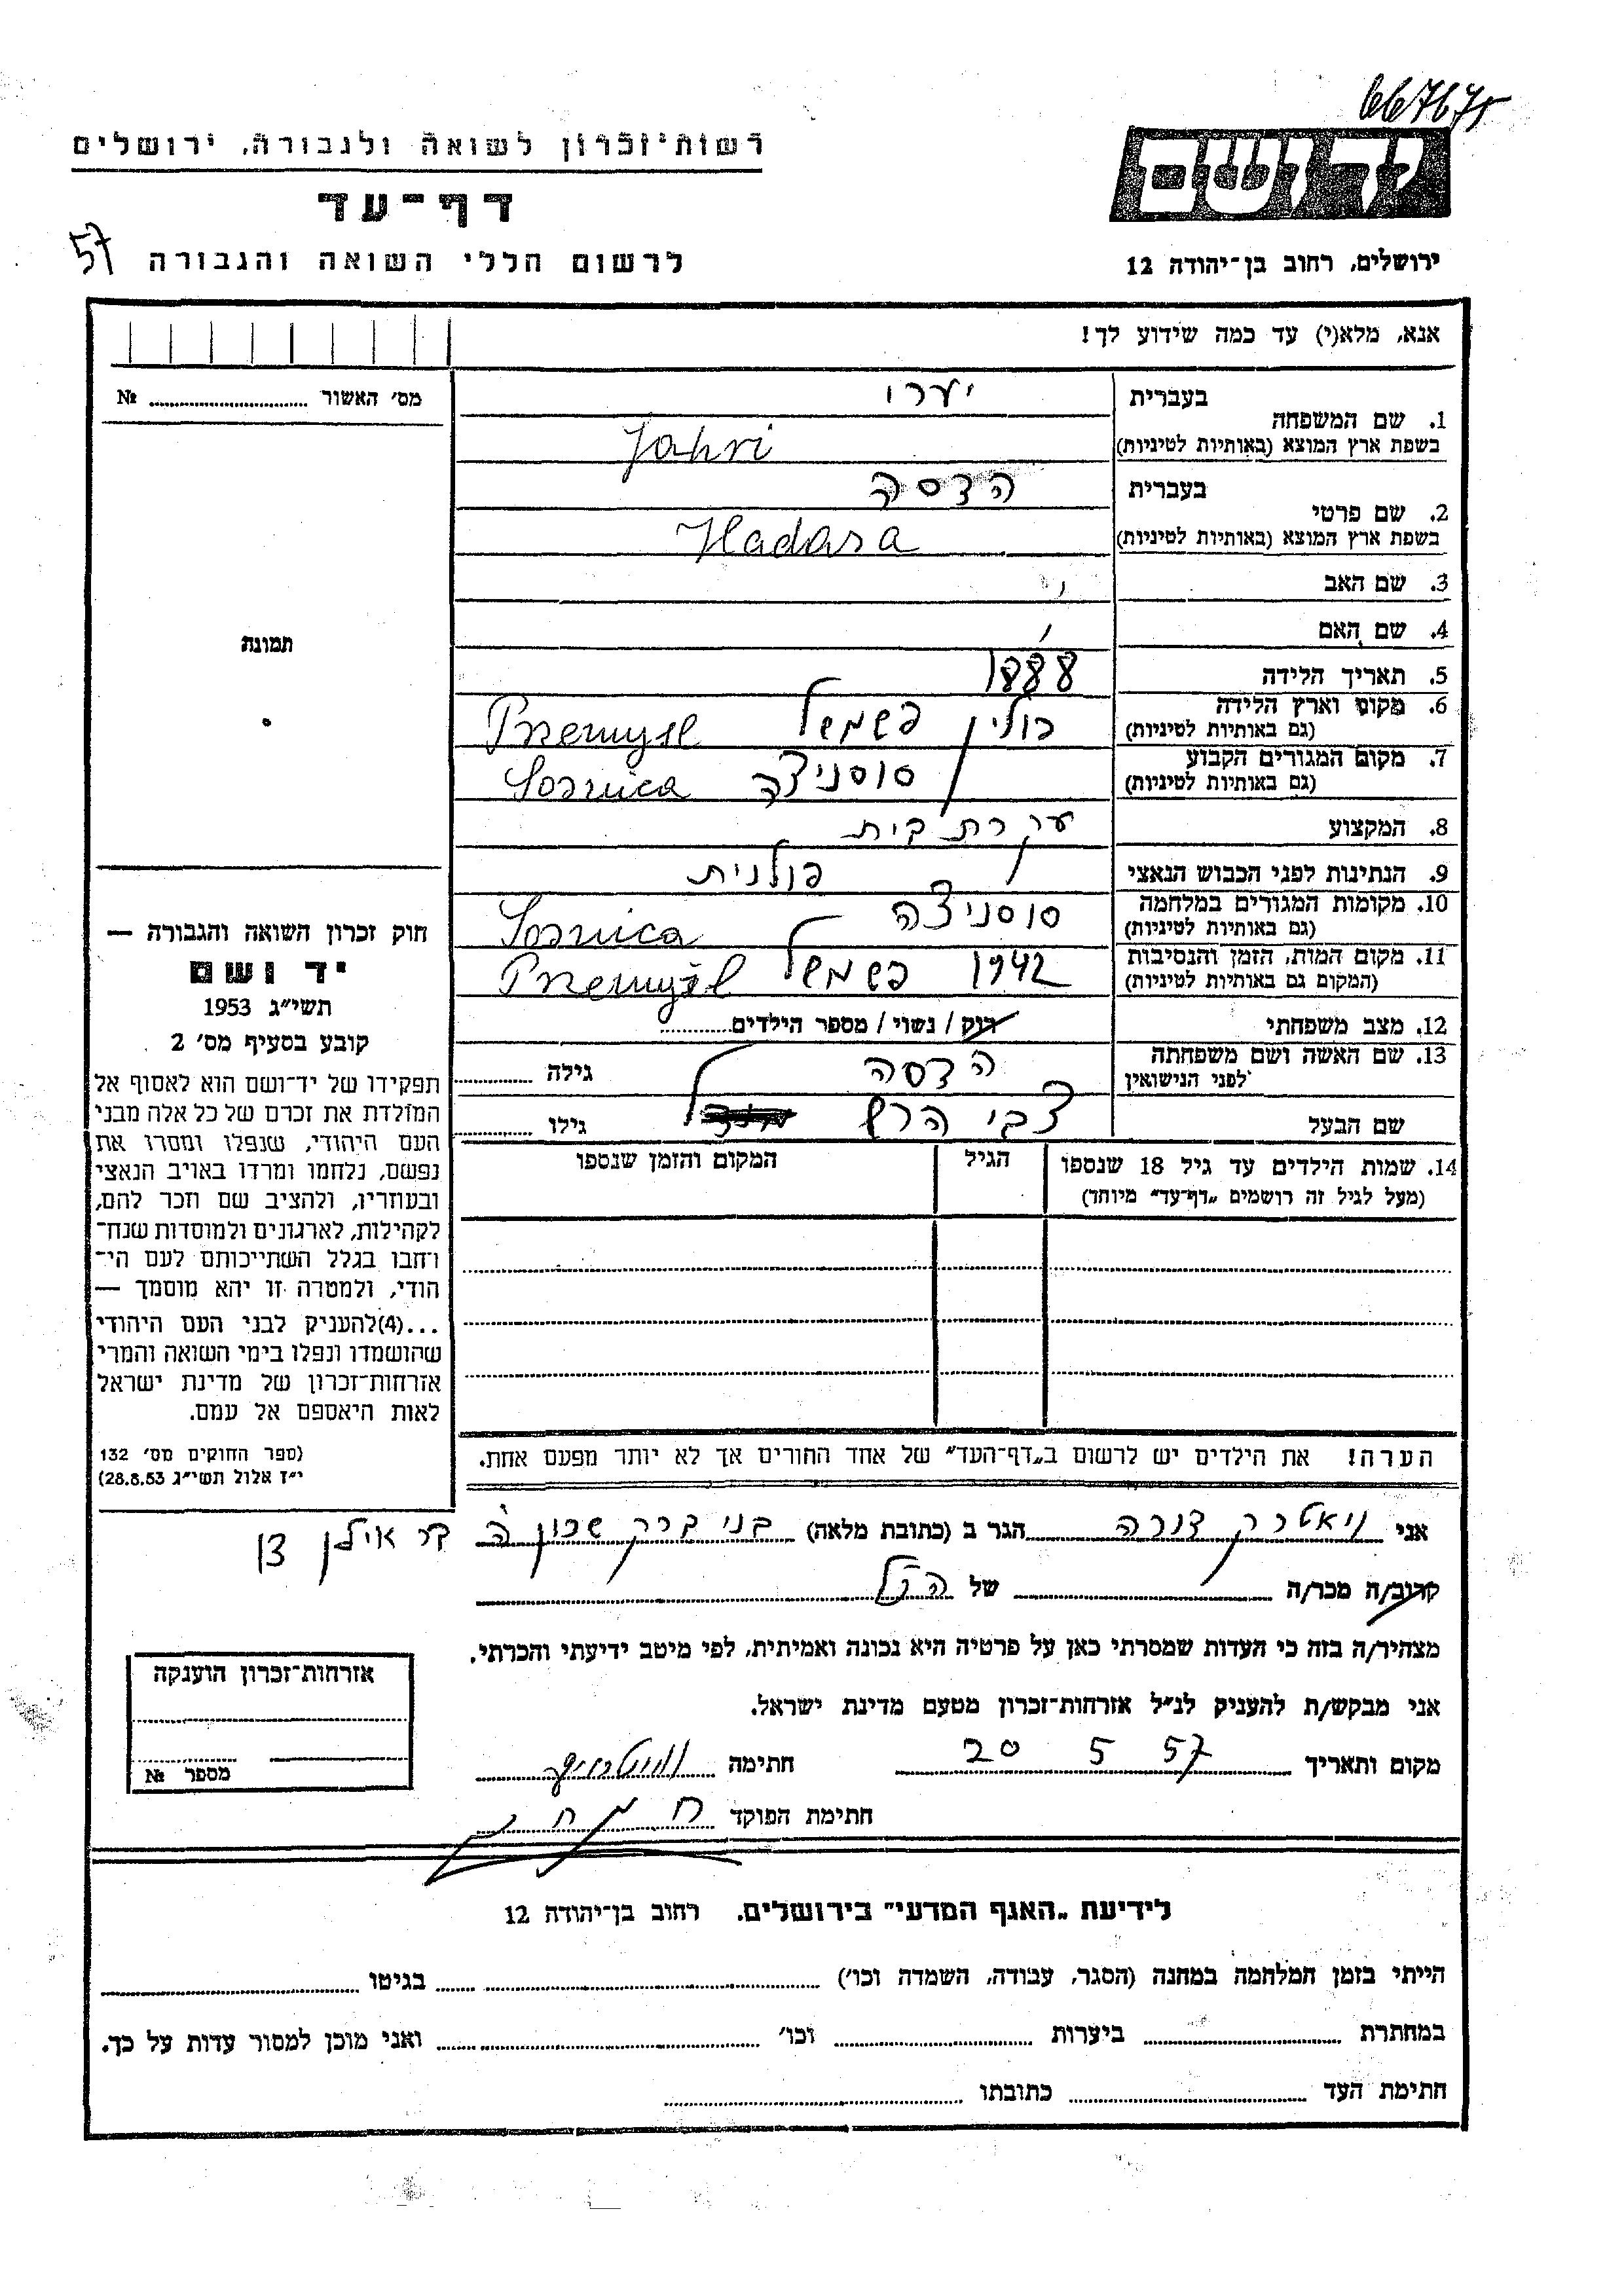 667675
יד ושם
רשות־זכרון לשואה ולגבורה, ירושלים
דף־עד
לרשום חללי השואה והגבורה
57
ירושלים, רחוב בן־יהודה 12
אנא, מלא(י) עד כמה שידוע לך!
מס׳ האשור № ..........
תמונה
בעברית
1. שם המשפחה
בשפת ארץ המוצא (באותיות לטיניות)
יערי
Jahri
בעברית
2. שם פרטי
בשפת ארץ המוצא (באותיות לטיניות)
הדסה
Hadasa
3. שם האב
4. שם האם
5. תאריך הלידה 1888
6. מקום וארץ הלידה
(גם באותיות לטיניות)
פולין פשמשל Przemysl
7. מקום המגורים הקבוע
(גם באותיות לטיניות)
סוסניצה Sosnica
8. המקצוע עקרת בית
9. הנתינות לפני הכבוש הנאצי פולנית
10. מקומות המגורים במלחמה
(גם באותיות לטיניות)
סוסניצה Sosnica
11. מקום המות, הזמן והנסיבות
(המקום גם באותיות לטיניות)
1942 פשמשל Przemyśl
12. מצב משפחתי רוק / נשוי / מספר הילדים..........
13. שם האשה ושם משפחתה
לפני הנישואין
הדסה גילה ..........
שם הבעל צבי הרש גילו ..........
14. שמות הילדים עד גיל 18 שנספו
(מעל לגיל זה רושמים „דף־עד״ מיוחד)
הגיל
המקום והזמן שנספו
הערה! את הילדים יש לרשום ב„דף־העד״ של אחד החורים אך לא יותר מפעם אחת.
חוק זכרון השואה והגבורה —
יד ושם
תשי״ג 1953
קובע בסעיף מס׳ 2
תפקידו של יד־ושם הוא לאסוף אל
המולדת את זכרם של כל אלה מבני
העם היהודי, שנפלו ומסרו את
נפשם, נלחמו ומרדו באויב הנאצי
ובעוזריו, ולהציב שם וזכר להם,
לקהילות, לארגונים ולמוסדות שנח־
רחבו בגלל השתייכותם לעם הי־
הודי, ולמטרה זו יהא מוסמך —
...(4)להעניק לבני העם היהודי
שהושמדו ונפלו בימי השואה והמרי
אזרחות־זכרון של מדינת ישראל
לאות היאספם אל עמם.
(ספר החוקים מס׳ 132
י״ז אלול תשי״ג 28.8.53)
אני ויאטרק דורה הגר ב (כתובת מלאה) בני ברק שכון ה
קרוב/ה מכר/ה .......... של הנ״ל
מצהיר/ה בזה כי העדות שמסרתי כאן על פרטיה היא נכונה ואמיתית, לפי מיטב ידיעתי והכרתי.
אני מבקש/ת להעניק לנ״ל אזרחות־זכרון מטעם מדינת ישראל.
מקום ותאריך 20 5 57 חתימה
חתימת הפוקד
אזרחות־זכרון הוענקה
מספר №
לידיעת „האגף המדעי״ בירושלים, רחוב בן־יהודה 12
הייתי בזמן המלחמה במחנה (הסגר, עבודה, השמדה וכו׳) .......... בגיטו ..........
במחתרת .......... ביערות .......... וכו׳ .......... ואני מוכן למסור עדות על כך.
חתימת העד .......... כתובתו ..........